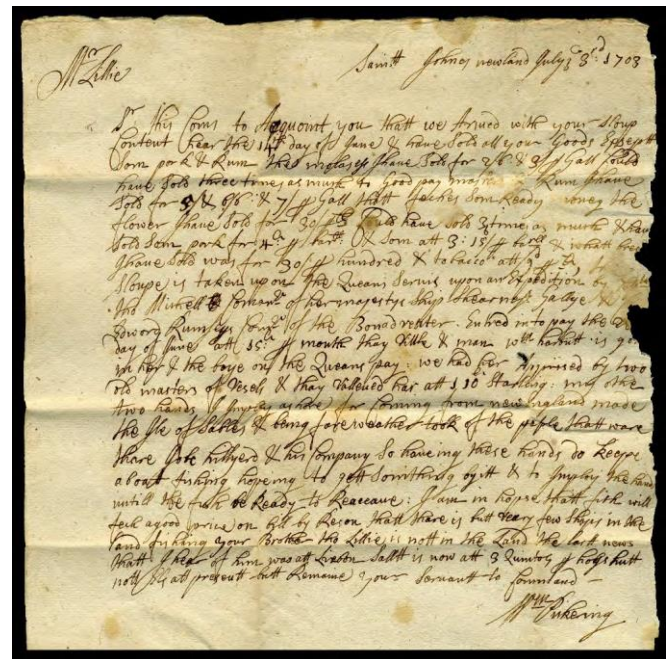 Mr Lillie
Saintt Johnes newland July 3rd: 1703
Sr this Coms to Acquaint you thatt we Arrived with your Sloup
Content hear the 14th day of June & have Sold all your Goods Exseptt
Som pork & Rum the molases I have Sold for 2/6 & 3 p Gall Could
have Sold three times as much to Good pay masters Rum I have
Sold for & 6/6: & 7 p Gall thatt fetches Som Ready money the
flower I have Sold for 30 Could have sold 3 times as much & have
Sold Som pork for 4 p & Som att 3: 15 p & whatt
I have Sold was for 30 p hundred & tobacco att p
Sloupe is taken upon the Queans Servis upon an Expedition by
Tho Michell Coman of her majestys Ship Shearness Gallye &
Edword Rumsye of the Bonadventer. Entred into pay the
day of June att 15 p month thay Vittle & man will is gon
in her & the boye on the Queans pay: we had her Apprised by two
old masters of Vesels & thay Vallewed her att 110 Starling: my othe
two hands I Imploy ashore for Coming from newIngland made
the Ile of Sables & being fare weather took of the people thatt ware
thare & his Company So haveing these hands do keepe
a boat fishing hopeing to gett Sumthing by itt & to Imploy the hands
untill the fish be Ready to Reaceave: I am in hopse thatt fish will
feck a good price on bill by Reson thatt thare is butt very few Ships in the
land fishing your Brother tho Lillie is nott in the Land the last news
thatt I hear of him was att Lizbon Saltt is now att 3 p hogshutt
nott Els att presentt butt Remaine your Servant to Command
Wm Pickering